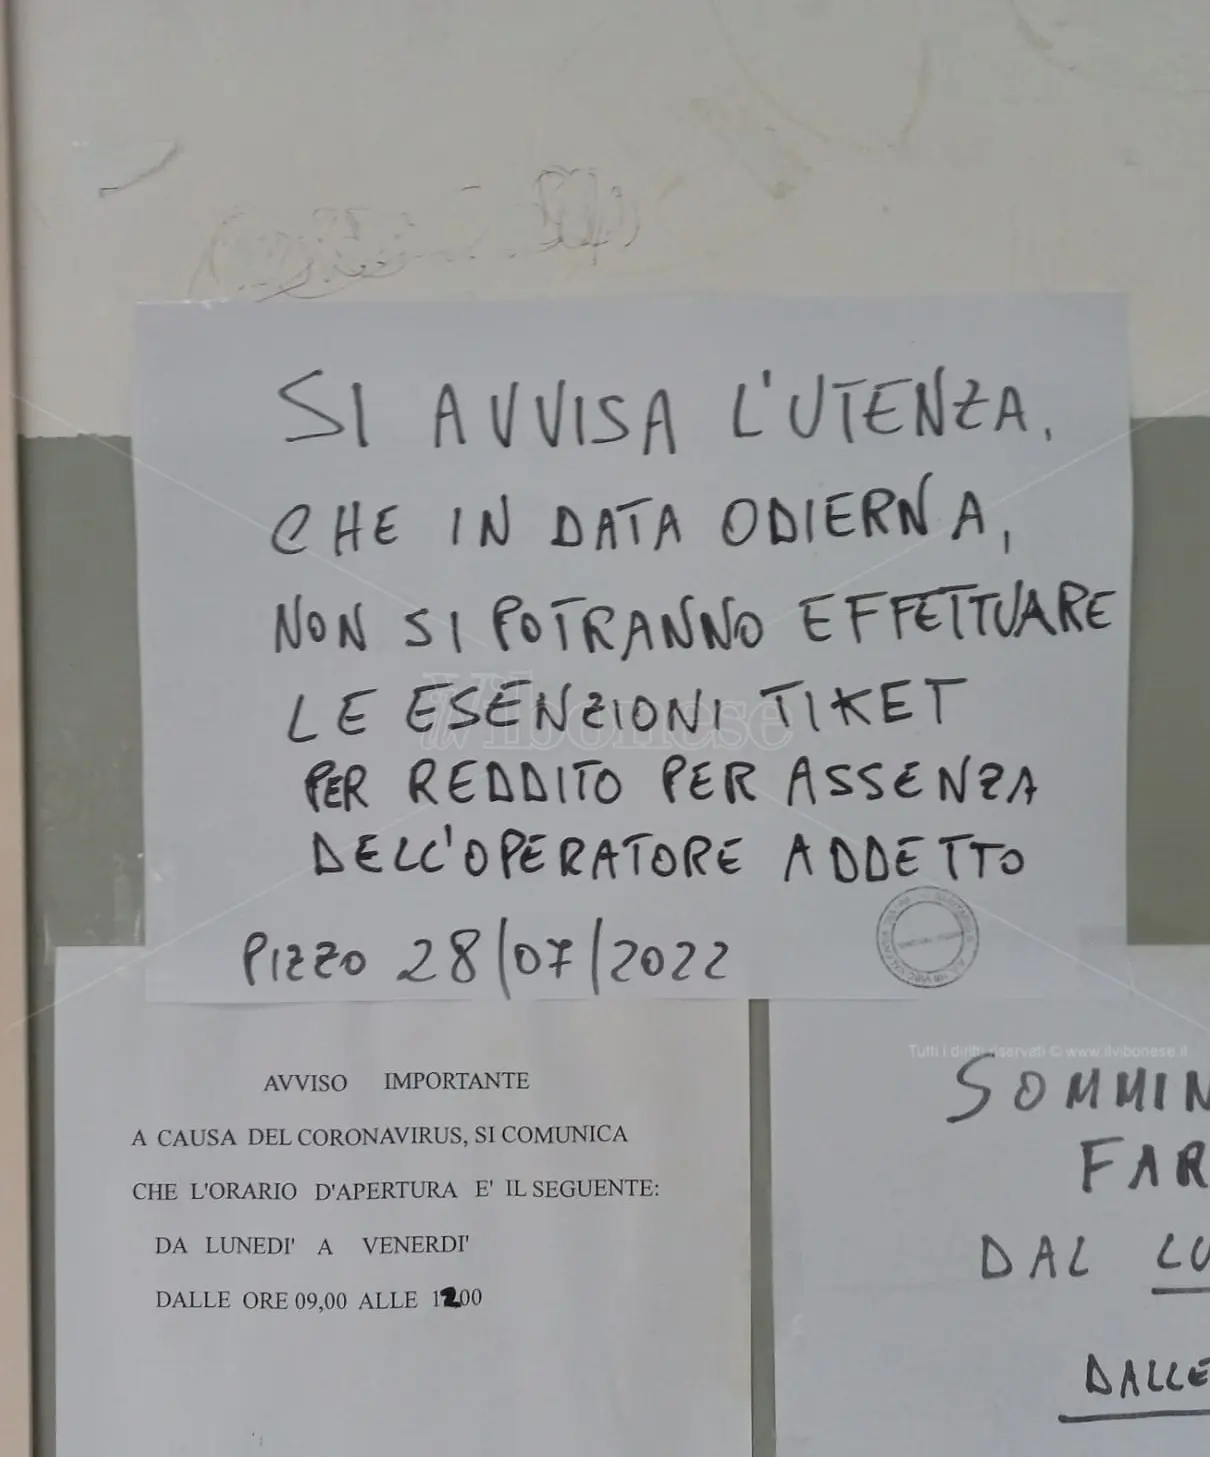 SI AVVISA L'UTENZA,
CHE IN DATA ODIERNA,
NON SI POTRANNO EFFETTUARE
LE ESENZIONI TIKET
il Vibonese
PER REDDITO PER ASSENZA
DELL'OPERATORE ADDETTO
PIZZO 28/07/2022
Tutti i diritti riservati © www.ilvibonese.it
AVVISO IMPORTANTE
A CAUSA DEL CORONAVIRUS, SI COMUNICA
CHE L'ORARIO D'APERTURA E' IL SEGUENTE:
DA LUNEDI' A VENERDI'
DALLE ORE 09,00 ALLE 1200
SOMMIN
FAR
DAL LU
DALLE